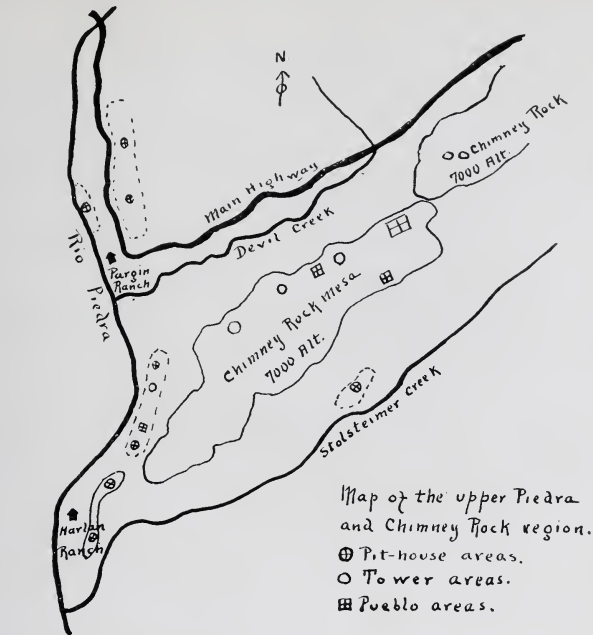 N
Chimney Rock
7000 Alt.
Main Highway
Devil Creek
Rio Piedra
Pargin
Ranch
Chimney Rock Mesa
7000 Alt.
Stolsteimer Creek
Harlan
Ranch
Map of the upper Piedra
and Chimney Rock region.
Pit-house areas.
Tower areas.
Pueblo areas.